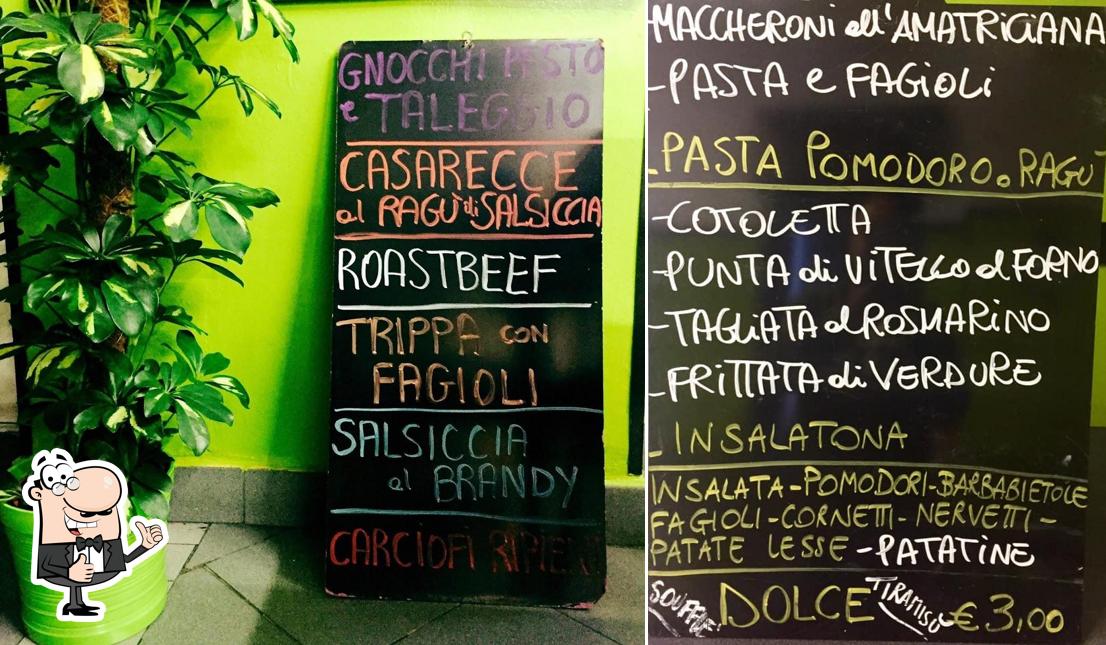 GNOCCHI PESTO
e TALEGGIO
CASARECCE
al RAGÙ di SALSICCIA
ROASTBEEF
TRIPPA CON
FAGIOLI
SALSICCIA
al BRANDY
CARCIOFI RIPIENI
-MACCHERONI all'AMATRICIANA
-PASTA e FAGIOLI
-PASTA POMODORO o RAGU'
-COTOLETTA
-PUNTA di VITELLO al FORNO
-TAGLIATA al ROSMARINO
-FRITTATA di VERDURE
-INSALATONA
INSALATA-POMODORI-BARBABIETOLE
FAGIOLI-CORNETTI-NERVETTI-
PATATE LESSE-PATATINE
SOUFFLE' DOLCE TIRAMISÙ € 3,00